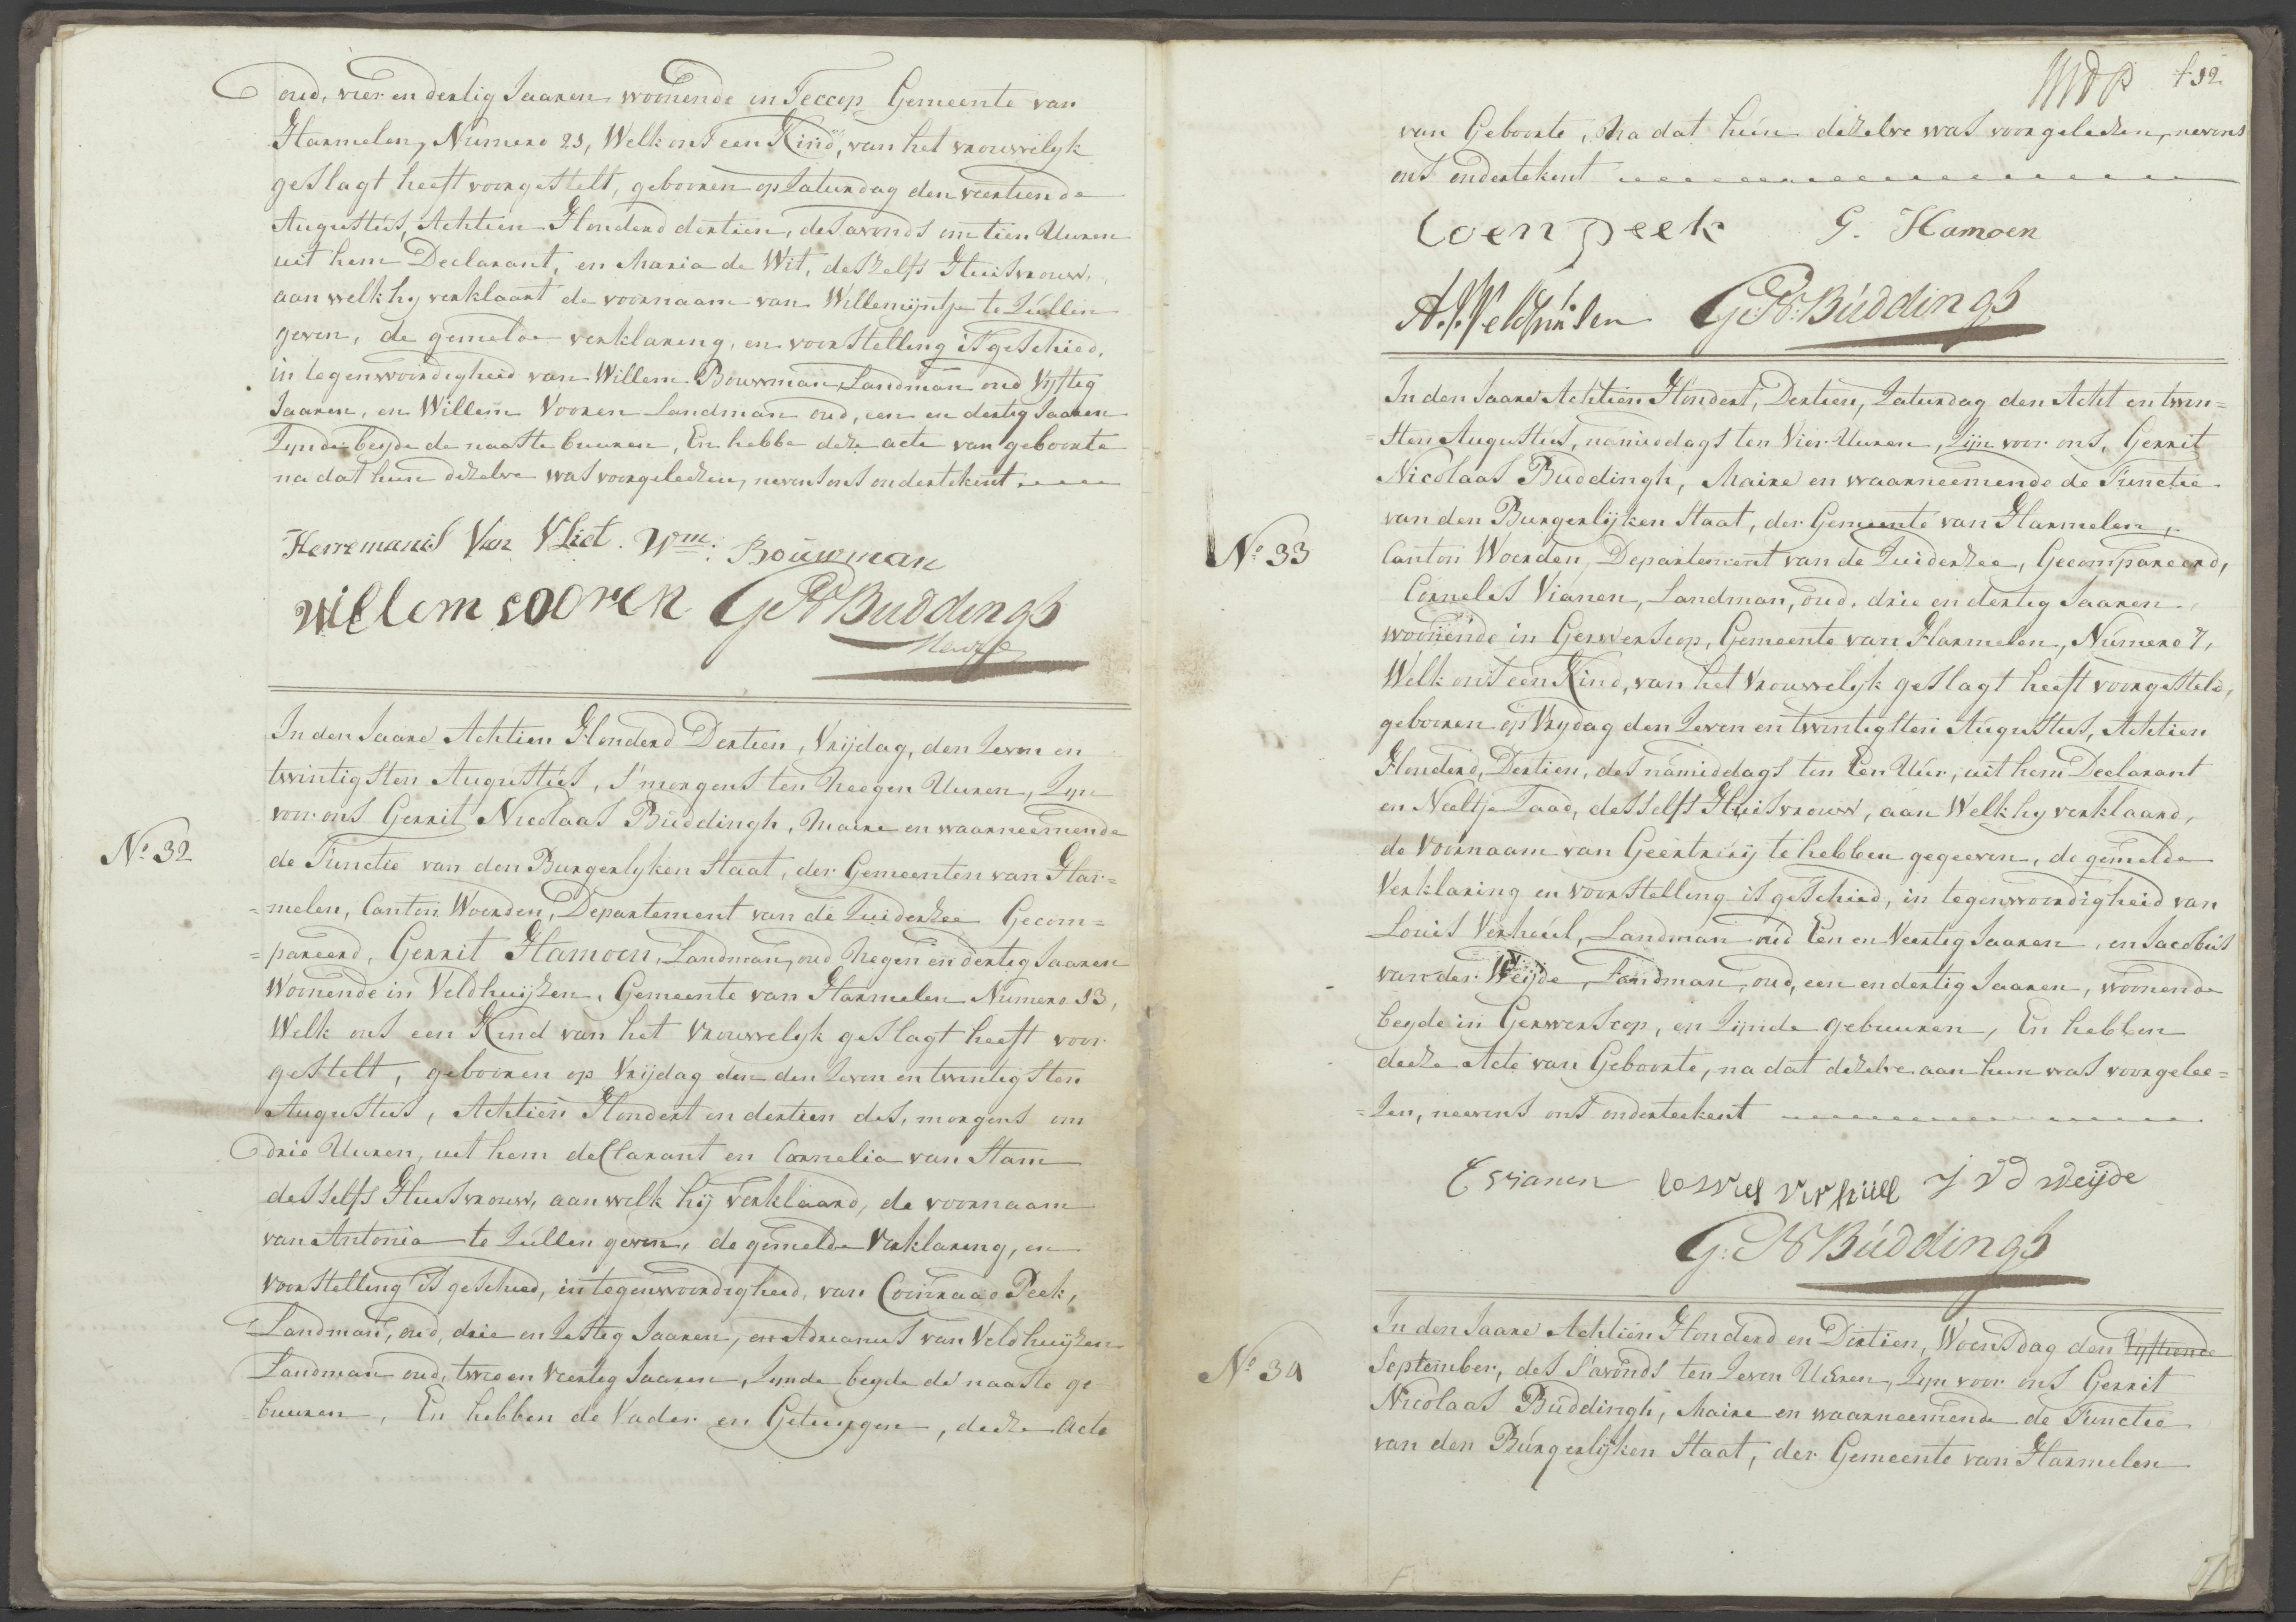 oud, vier en dertig Jaaren woonende in Teccop Gemeente van
Harmelen, Numero 23, Welk ons een Kind, van het vrouwelyk
geslagt heeft voorgestelt, gebooren op Saturdag den veertiende
Augustus, Achtien Honderd dertien, des avonds om tien Uuren
uit hem Declarant, en Maria de Wit, deszelfs Huisvrouw,
aan welk hy verklaart de voornaam van Willemijntje te Zullen
geven, de gemelde verklaring, en voorstelling is geschied,
in tegenwoordigheid van Willem Bouwman Landman oud Vyftig
Jaaren, en Willem Vooren Landman oud, een en dertig Jaaren
Zynde beyde de naaste buuren, En hebbe deze acte van geboorte
na dat hun dezelve was voorgeleezen, nevens ons ondertekent
Herremanis Van Vliet. Wm: Bouwman
Willem vooren GN Buddingh
In den Jaare Achtien Honderd Dertien, Vrijdag, den Zeven en
twintigsten Augustus, s'morgens ten Neegen Uuren, Zyn
voor ons Gerrit Nicolaas Buddingh, Maire en waarneemende
No. 32
de Functie van den Burgerlyken Staat, der Gemeenten van Har=
=melen, Canton Woerden, Departement van de Zuiderzee Gecom=
=pareerd, Gerrit Hamoen, Landman, oud Negen en dertig Jaaren
Woonende in Veldhuijzen, Gemeente van Harmelen Numero 13,
Welk ons een Kind van het Vrouwelyk geslagt heeft voor
gestelt, gebooren op Vrijdag den den Zeven en twintigsten
Augustus, Achtien Hondert en dertien des, morgens om
drie Uuren, uit hem declarant en Cornelia van Stam
desselfs Huisvrouw, aan welk hij verklaard, de voornaam
van Antonia te Zullen geven, de gemelde Verklaring, en
voorstelling is geschied, in tegenwoordigheid, van Coenraad Peek,
Landman, oud, drie en Zestig Jaaren, en Adrianus van Veldhuijzen
Landman oud, twee en Veertig Jaaren, Zynde beyde de naaste ge
=buuren, En hebben de Vader en Getuygen, deeze Acte
132
van Geboorte, Na dat hun dezelve was voorgeleezen, nevens
ons ondertekent
Coen peek G. Hamoen
A.V. Veldhuisen G.N. Buddingh
In den Jaare Achtien Hondert, Dertien, Saturdag den Acht en twin=
=sten Augustus, namiddags ten Vier Uuren, Zijn voor ons, Gerrit
Nicolaas Buddingh, Maire en waarneemende de Functie
van den Burgerlijken Staat, der Gemeente van Harmelen,
No. 33
Canton Woerden, Departement van de Zuiderzee, Gecompareerd,
Cornelis Vianen, Landman, oud, drie en dertig Jaaren
woonende in Gerwerscop, Gemeente van Harmelen, Numero 7,
Welk ons een Kind, van het Vrouwelijk geslagt heeft voorgesteld,
gebooren op Vrydag den Zeven en twintigsten Augustus, Achtien
Honderd, Dertien, des namiddags ten Een Uur, uit hem Declarant
en Neeltje Zaad, desselfs Huisvrouw, aan Welk hy verklaard,
de Voornaam van Geertruij te hebben gegeeven, de gemelde
Verklaring en voorstelling is geschied, in tegenwoordigheid van
Louis Verheul, Landman oud Een en Veertig Jaaren, en Jacobus
van der Weijde, Landman, oud, een en dertig Jaaren, woonende
beyde in Gerwerscop, en Zijnde gebuuren, En hebben
deeze Acte van Geboorte, na dat dezelve aan hun was voorgelee=
=zen, neevens ons onderteekent
C vianen lowies verhuell J v d weijde
G. N Buddingh
In den Jaare Achtien Honderd en Dertien, Woensdag den Vyftiende
No. 34
September, des s'avonds ten Zeven Uuren, Zyn voor ons Gerrit
Nicolaas Buddingh, Maire en waarneemende de Functie
van den Burgerlijken Staat, der Gemeente van Harmelen